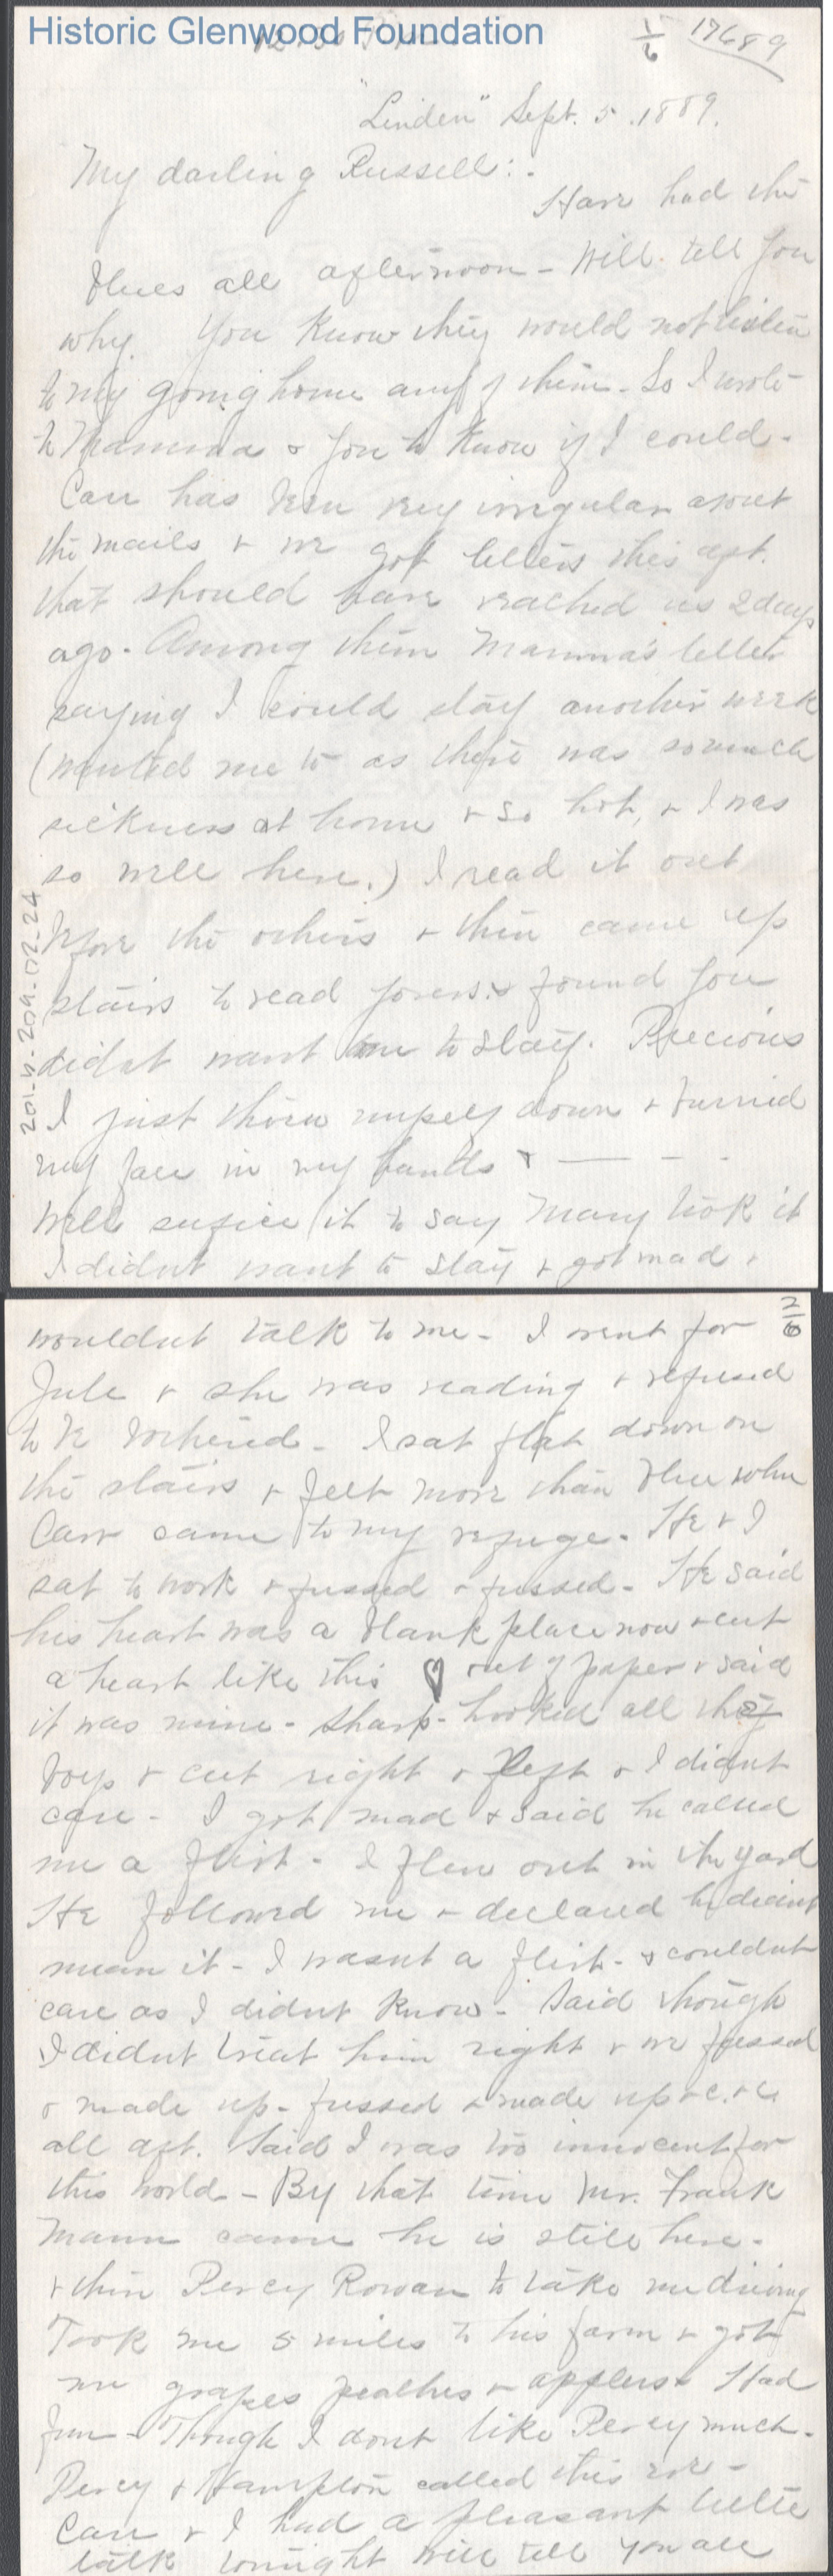 Historic Glenwood Foundation
1/6 17689
"Linden" Sept. 5. 1889.
My darling Russell:.
Have had the
blues all afternoon - Will tell you
why. You know they would not listen
to my going home any of them - So I wrote
to Mamma & you to know if I could -
Carr has been very irregular about
the mails & we got letters this aft.
that should have reached us 2 days
ago - Among them Mamma's letter
saying I could stay another week
(wanted me to as there was so much
sickness at home & so hot, & I was
so well here.) I read it out
before the others & then came up
stairs to read yours & found you
didnt want me to stay. Precious
I just threw myself down & burried
my face in my hands & — - -
Well sufice it to say Mary took it
I didnt want to stay & got mad &
201-4-209-02-24
2/6
wouldnt talk to me - I went for
Jule & she was reading & refused
to be bothered - I sat flat down on
the stairs & felt more than blue when
Carr came to my refuge - He & I
sat to work & fussed & fussed - He said
his heart was a blank place now & cut
a heart like this out of paper & said
it was mine - sharp - hooked all the
boys & cut right & left & I didnt
care - I got mad & said he called
me a flirt - I flew out in the yard
He followed me & declared he didnt
mean it - I wasnt a flirt - & couldnt
care as I didnt know - Said though
I didnt treat him right & we fussed
& made up - fussed & made up &c. &c
all aft. Said I was too innocent for
this world - By that time Mr. Frank
Mann came he is still here -
& then Percy Rowan to take me driving
Took me 5 miles to his farm & got
me grapes peaches & apples & Had
fun - Though I dont like Percy much -
Percy & Hampton called this eve -
Carr & I had a pleasant little
talk tonight will tell you all